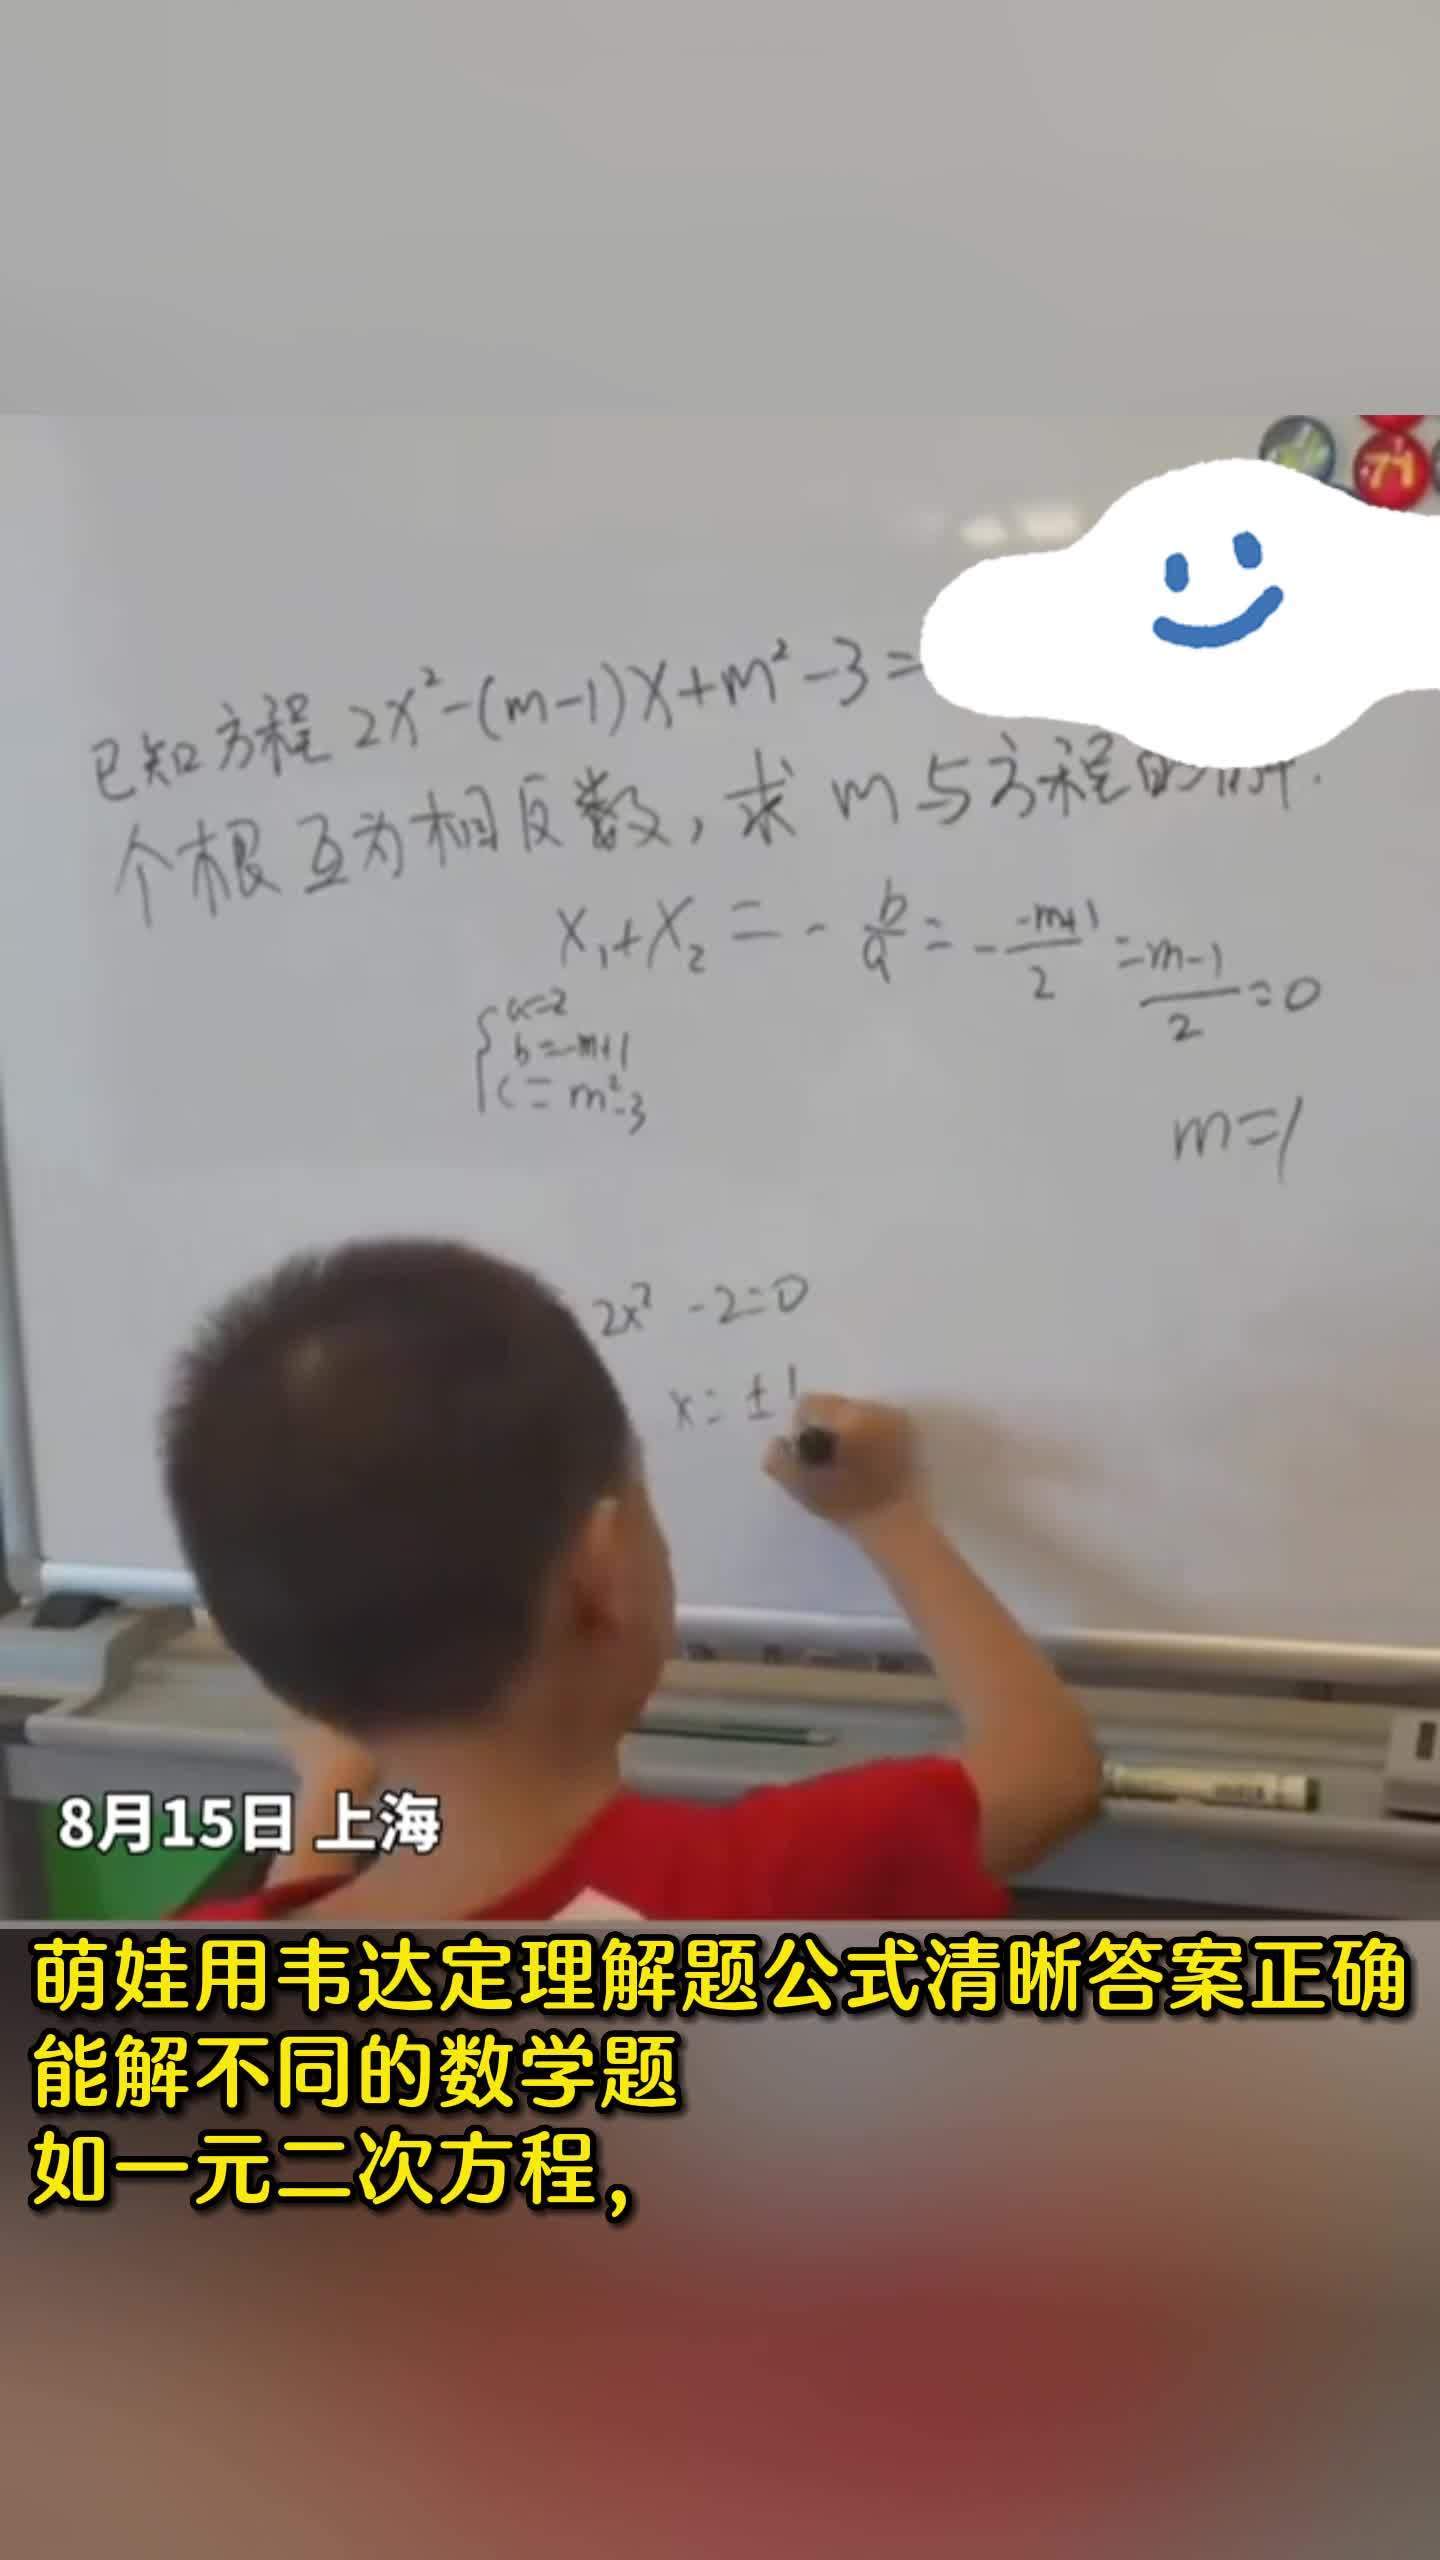 71
已知方程 2x²-(m-1)x+m²-3=
个根互为相反数,求 m 与方程的
x₁+x₂=-b/a=-(-m+1)/2=(m-1)/2=0
a=2
b=-m+1
c=m²-3
m=1
2x²-2=0
x=±1
8月15日 上海
萌娃用韦达定理解题公式清晰答案正确
能解不同的数学题
如一元二次方程,